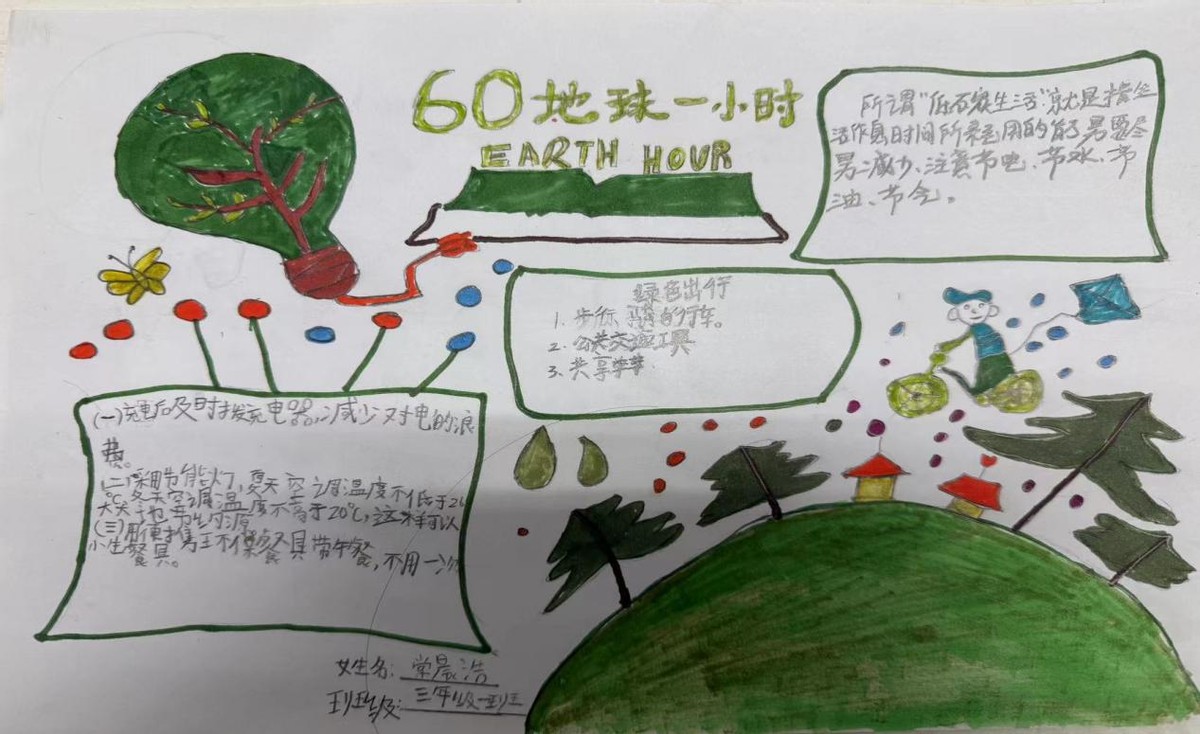 60地球一小时
EARTH HOUR
所谓"低石炭生活"就是指生
活作息时间所耗用的能
减少、注意节电、节水、节
油、节气。
绿色出行
1. 步行、自行车。
2. 公共交通工具
3. 共享
(一)充电后及时拔充电器,减少对电的浪
费。
(二)采用节能灯,夏天空调温度不低于26
℃,冬天空调温度不高于20℃,这样可以
大大地节约能源
(三)用便携 不锈 餐具带午餐,不用一次
小生餐具。
姓名:常晨浩
班级:三年级一班